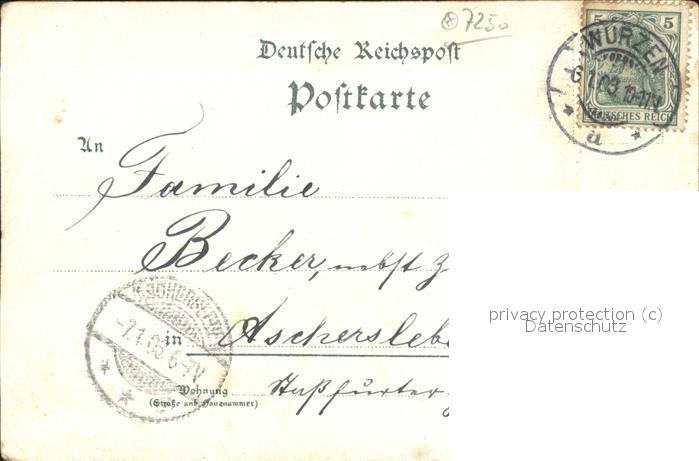 7250
Deutsche Reichspost
Postkarte
5 5
WURZEN
6.1.03. 10-11V
a
DEUTSCHES REICH
An
Familie
Becker, nebst
in Aschersleb
-7.1.03. 6-7V
privacy protection (c)
Datenschutz
Wohnung
(Straße und Hausnummer)